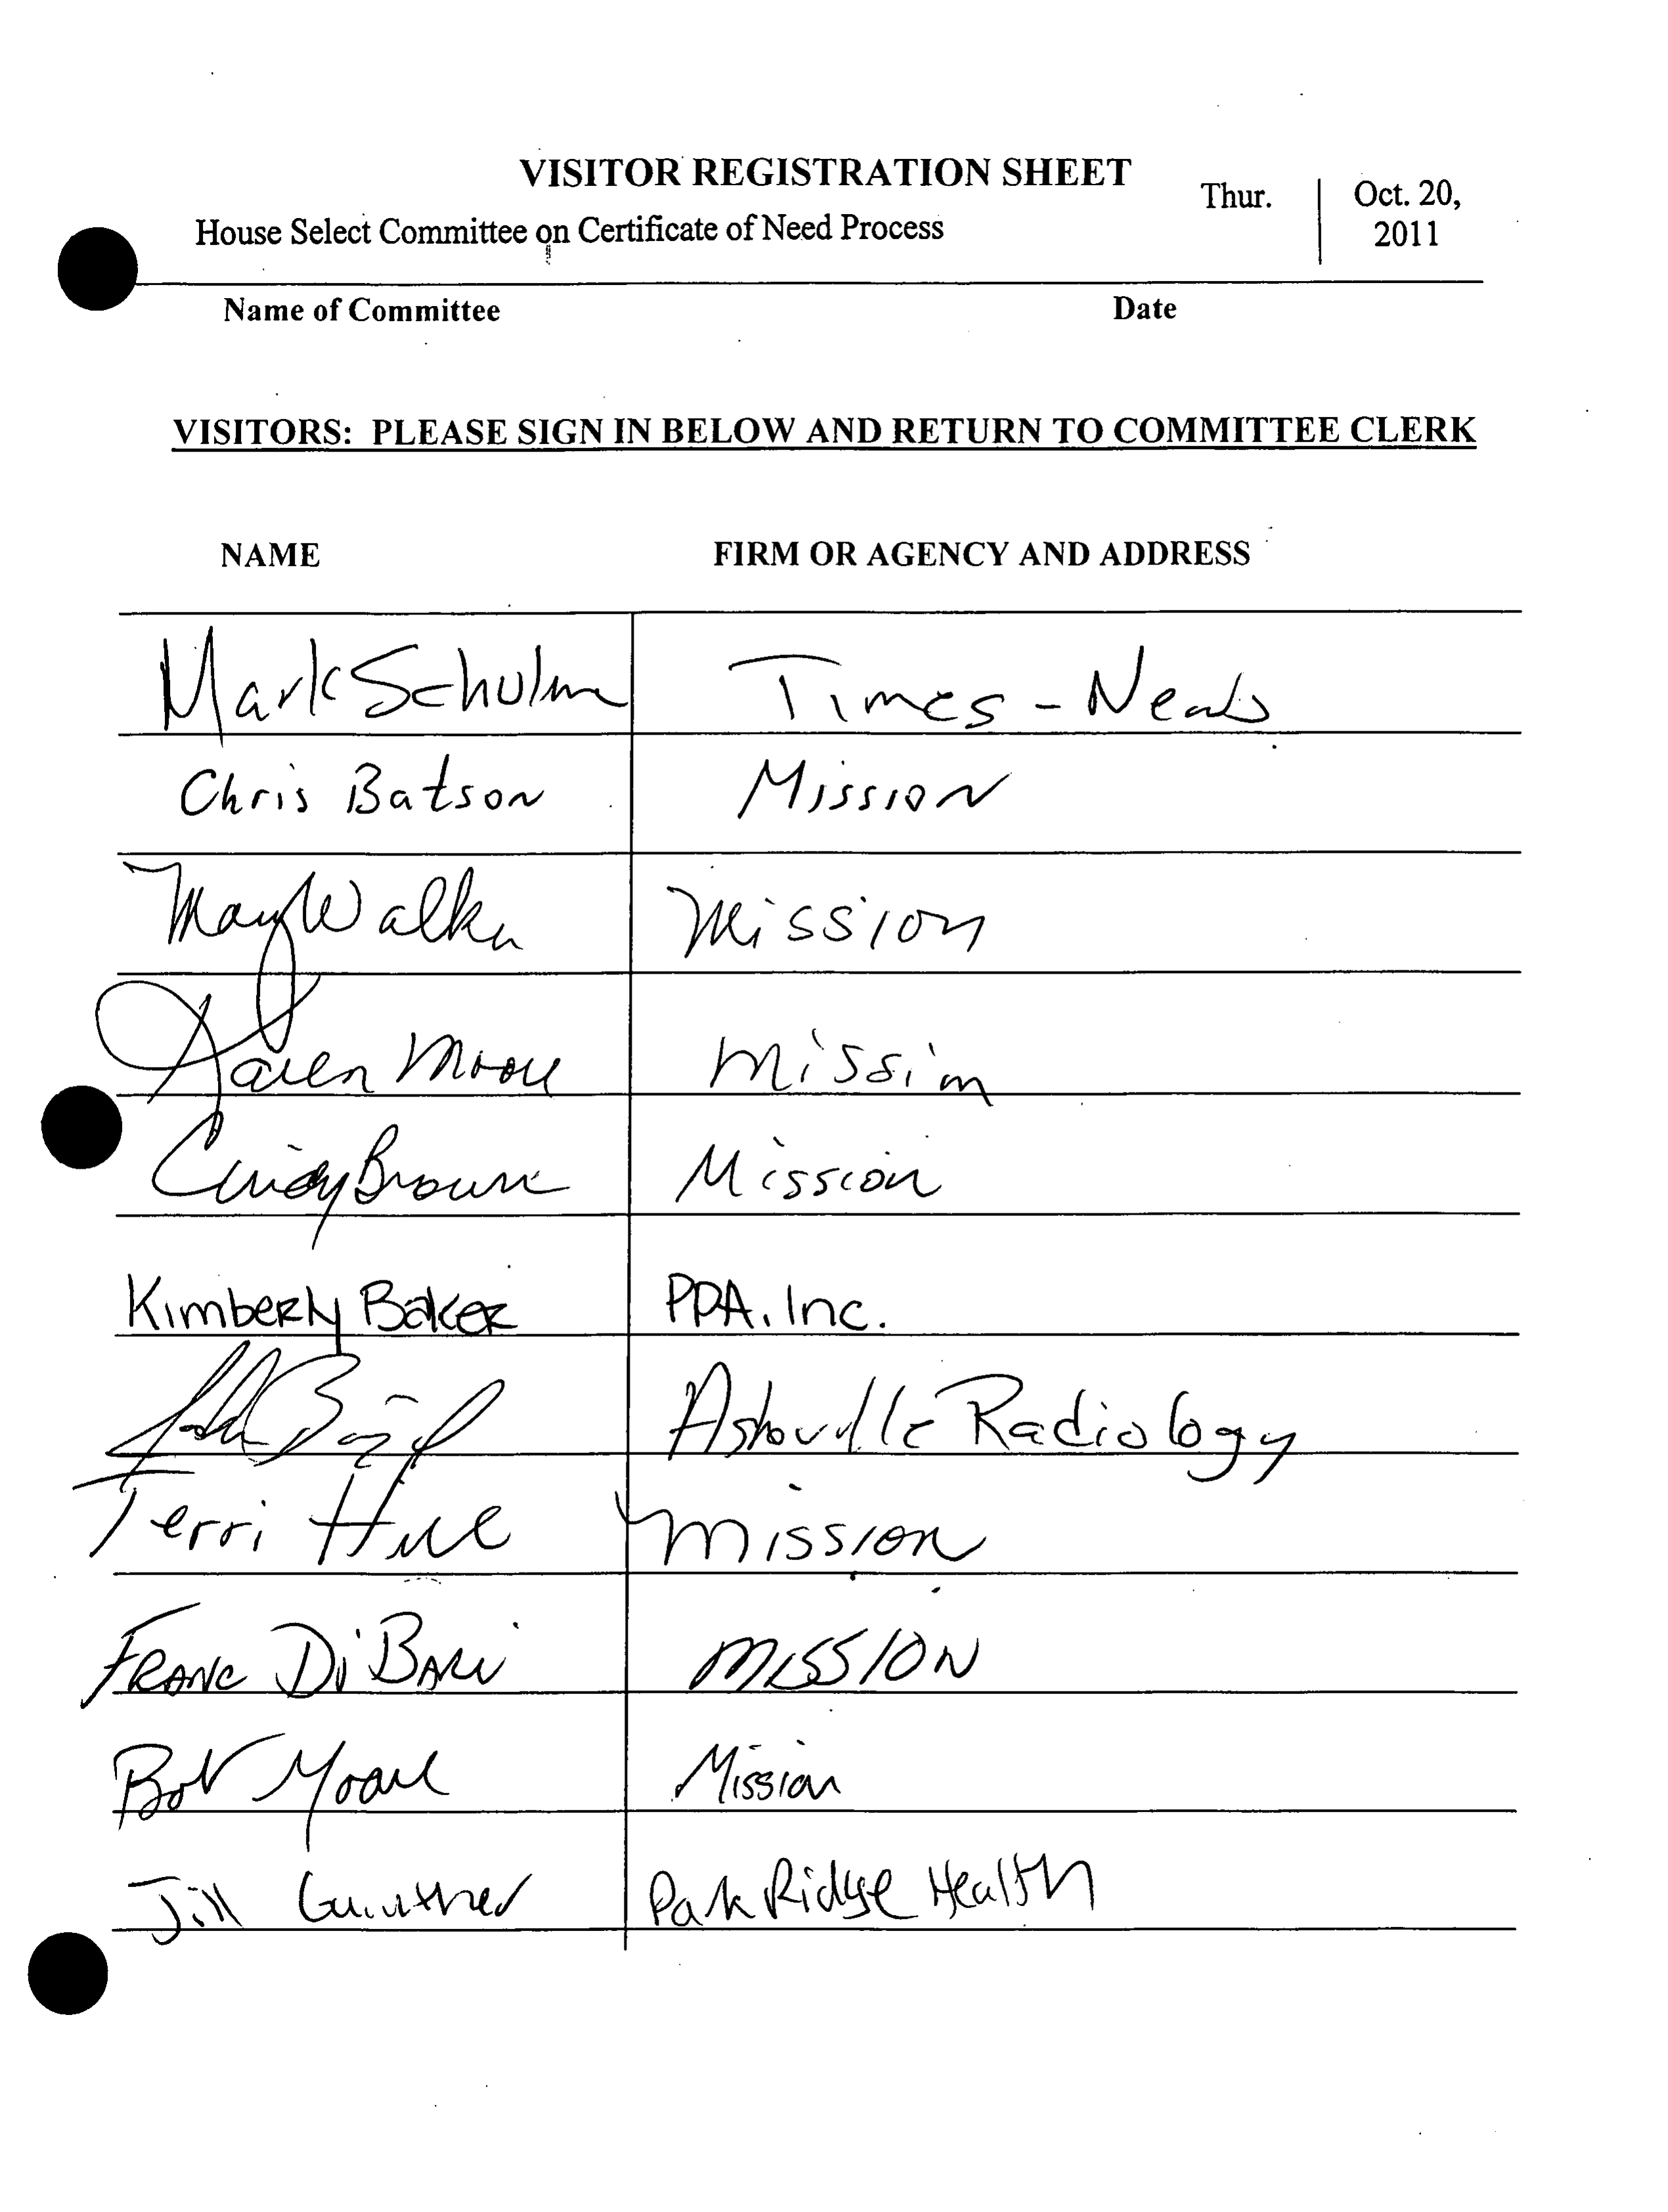 VISITOR REGISTRATION SHEET
Thur. Oct. 20,
House Select Committee on Certificate of Need Process 2011
Name of Committee Date
VISITORS: PLEASE SIGN IN BELOW AND RETURN TO COMMITTEE CLERK
NAME FIRM OR AGENCY AND ADDRESS
Mark Times-News
Chris Batson Mission
Mary Walker Mission
Karen Moore Mission
Cindy Brown Mission
Kimberly Baker PPA, Inc.
Asheville Radiology
Terri Hill Mission
FRANC DiBARI MISSION
Bob Moore Mission
Jill Park Ridge Health